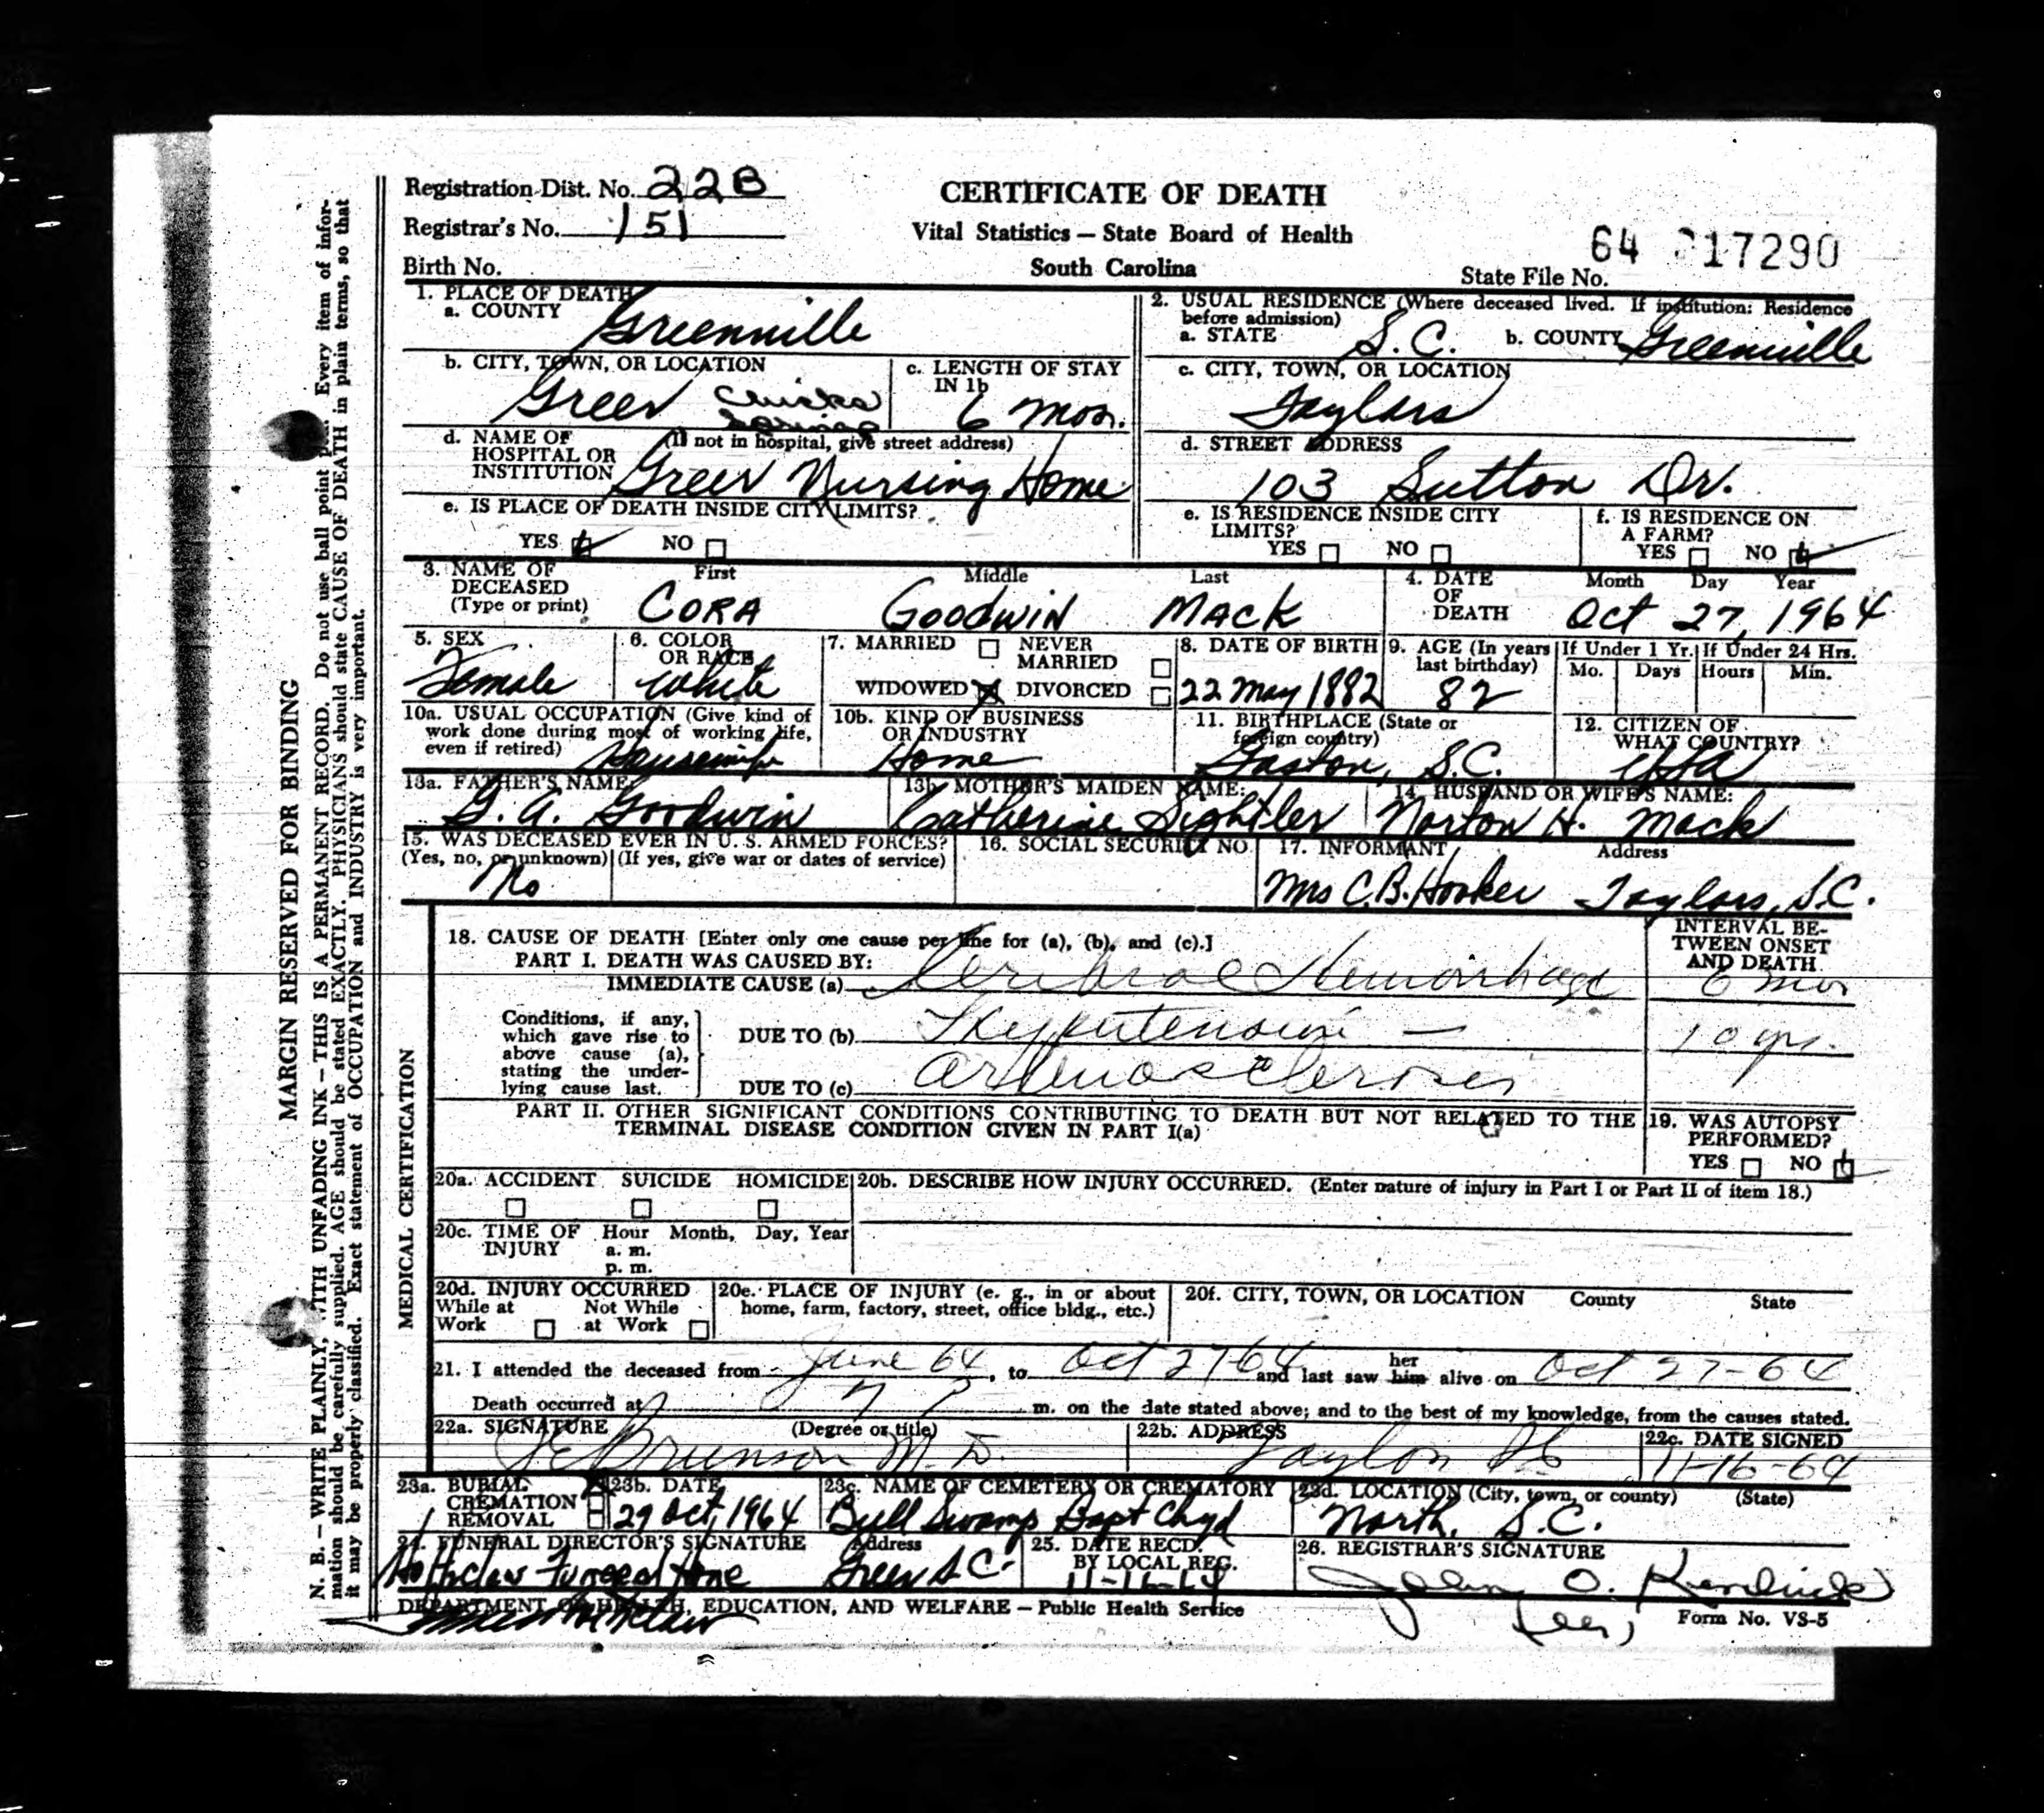 Registration Dist. No. 22B
Registrar's No. 151
Birth No.
CERTIFICATE OF DEATH
Vital Statistics — State Board of Health
South Carolina
64 017290
State File No.
1. PLACE OF DEATH
a. COUNTY Greenville
b. CITY, TOWN, OR LOCATION
Greer Chicks Springs
c. LENGTH OF STAY IN 1b
6 mos.
d. NAME OF HOSPITAL OR INSTITUTION (If not in hospital, give street address)
Greer Nursing Home
e. IS PLACE OF DEATH INSIDE CITY LIMITS?
YES NO
2. USUAL RESIDENCE (Where deceased lived. If institution: Residence before admission)
a. STATE S.C. b. COUNTY Greenville
c. CITY, TOWN, OR LOCATION
Taylors
d. STREET ADDRESS
103 Sutton Dr.
e. IS RESIDENCE INSIDE CITY LIMITS?
YES NO
f. IS RESIDENCE ON A FARM?
YES NO
3. NAME OF DECEASED (Type or print)
First Middle Last
CORA GOODWIN MACK
4. DATE OF DEATH
Month Day Year
Oct 27, 1964
5. SEX
Female
6. COLOR OR RACE
White
7. MARRIED NEVER MARRIED
WIDOWED X DIVORCED
8. DATE OF BIRTH
22 May 1882
9. AGE (In years last birthday)
82
If Under 1 Yr. If Under 24 Hrs.
Mo. Days Hours Min.
10a. USUAL OCCUPATION (Give kind of work done during most of working life, even if retired)
Housewife
10b. KIND OF BUSINESS OR INDUSTRY
Home
11. BIRTHPLACE (State or foreign country)
Gaston, S.C.
12. CITIZEN OF WHAT COUNTRY?
USA
13a. FATHER'S NAME
G. A. Goodwin
13b. MOTHER'S MAIDEN NAME:
Catherine Sightler
14. HUSBAND OR WIFE'S NAME:
Norton H. Mack
15. WAS DECEASED EVER IN U. S. ARMED FORCES?
(Yes, no, or unknown) (If yes, give war or dates of service)
No
16. SOCIAL SECURITY NO.
17. INFORMANT Address
Mrs C.B. Hooker Taylors, S.C.
MEDICAL CERTIFICATION
18. CAUSE OF DEATH [Enter only one cause per line for (a), (b), and (c).]
PART I. DEATH WAS CAUSED BY:
IMMEDIATE CAUSE (a) Cerebral Hemorrhage
INTERVAL BETWEEN ONSET AND DEATH
6 mos
Conditions, if any, which gave rise to above cause (a), stating the underlying cause last.
DUE TO (b) Hypertension —
10 yrs.
DUE TO (c) Arteriosclerosis
PART II. OTHER SIGNIFICANT CONDITIONS CONTRIBUTING TO DEATH BUT NOT RELATED TO THE
TERMINAL DISEASE CONDITION GIVEN IN PART I(a)
19. WAS AUTOPSY PERFORMED?
YES NO
20a. ACCIDENT SUICIDE HOMICIDE
20b. DESCRIBE HOW INJURY OCCURRED. (Enter nature of injury in Part I or Part II of item 18.)
20c. TIME OF INJURY Hour Month, Day, Year
a. m.
p. m.
20d. INJURY OCCURRED
While at Work Not While at Work
20e. PLACE OF INJURY (e. g., in or about home, farm, factory, street, office bldg., etc.)
20f. CITY, TOWN, OR LOCATION County State
21. I attended the deceased from June 64, to Oct 27 64 and last saw her him alive on Oct 27-64
Death occurred at 7 P m. on the date stated above; and to the best of my knowledge, from the causes stated.
22a. SIGNATURE (Degree or title)
Brunson M.D.
22b. ADDRESS
Taylors SC
22c. DATE SIGNED
11-16-64
23a. BURIAL
CREMATION
REMOVAL
23b. DATE
29 Oct, 1964
23c. NAME OF CEMETERY OR CREMATORY
Bull Swamp Bapt Chyd
23d. LOCATION (City, town, or county) (State)
North, S.C.
24. FUNERAL DIRECTOR'S SIGNATURE Address
Funeral Home Greer S.C.
25. DATE RECD. BY LOCAL REG.
11-16-64
26. REGISTRAR'S SIGNATURE
John O.
DEPARTMENT OF HEALTH, EDUCATION, AND WELFARE — Public Health Service
Form No. VS-5
MARGIN RESERVED FOR BINDING
N. B. — WRITE PLAINLY, WITH UNFADING INK — THIS IS A PERMANENT RECORD. Do not use ball point Every item of infor-
mation should be carefully supplied. AGE should be stated EXACTLY. PHYSICIANS should state CAUSE OF DEATH in plain terms, so that
it may be properly classified. Exact statement of OCCUPATION and INDUSTRY is very important.